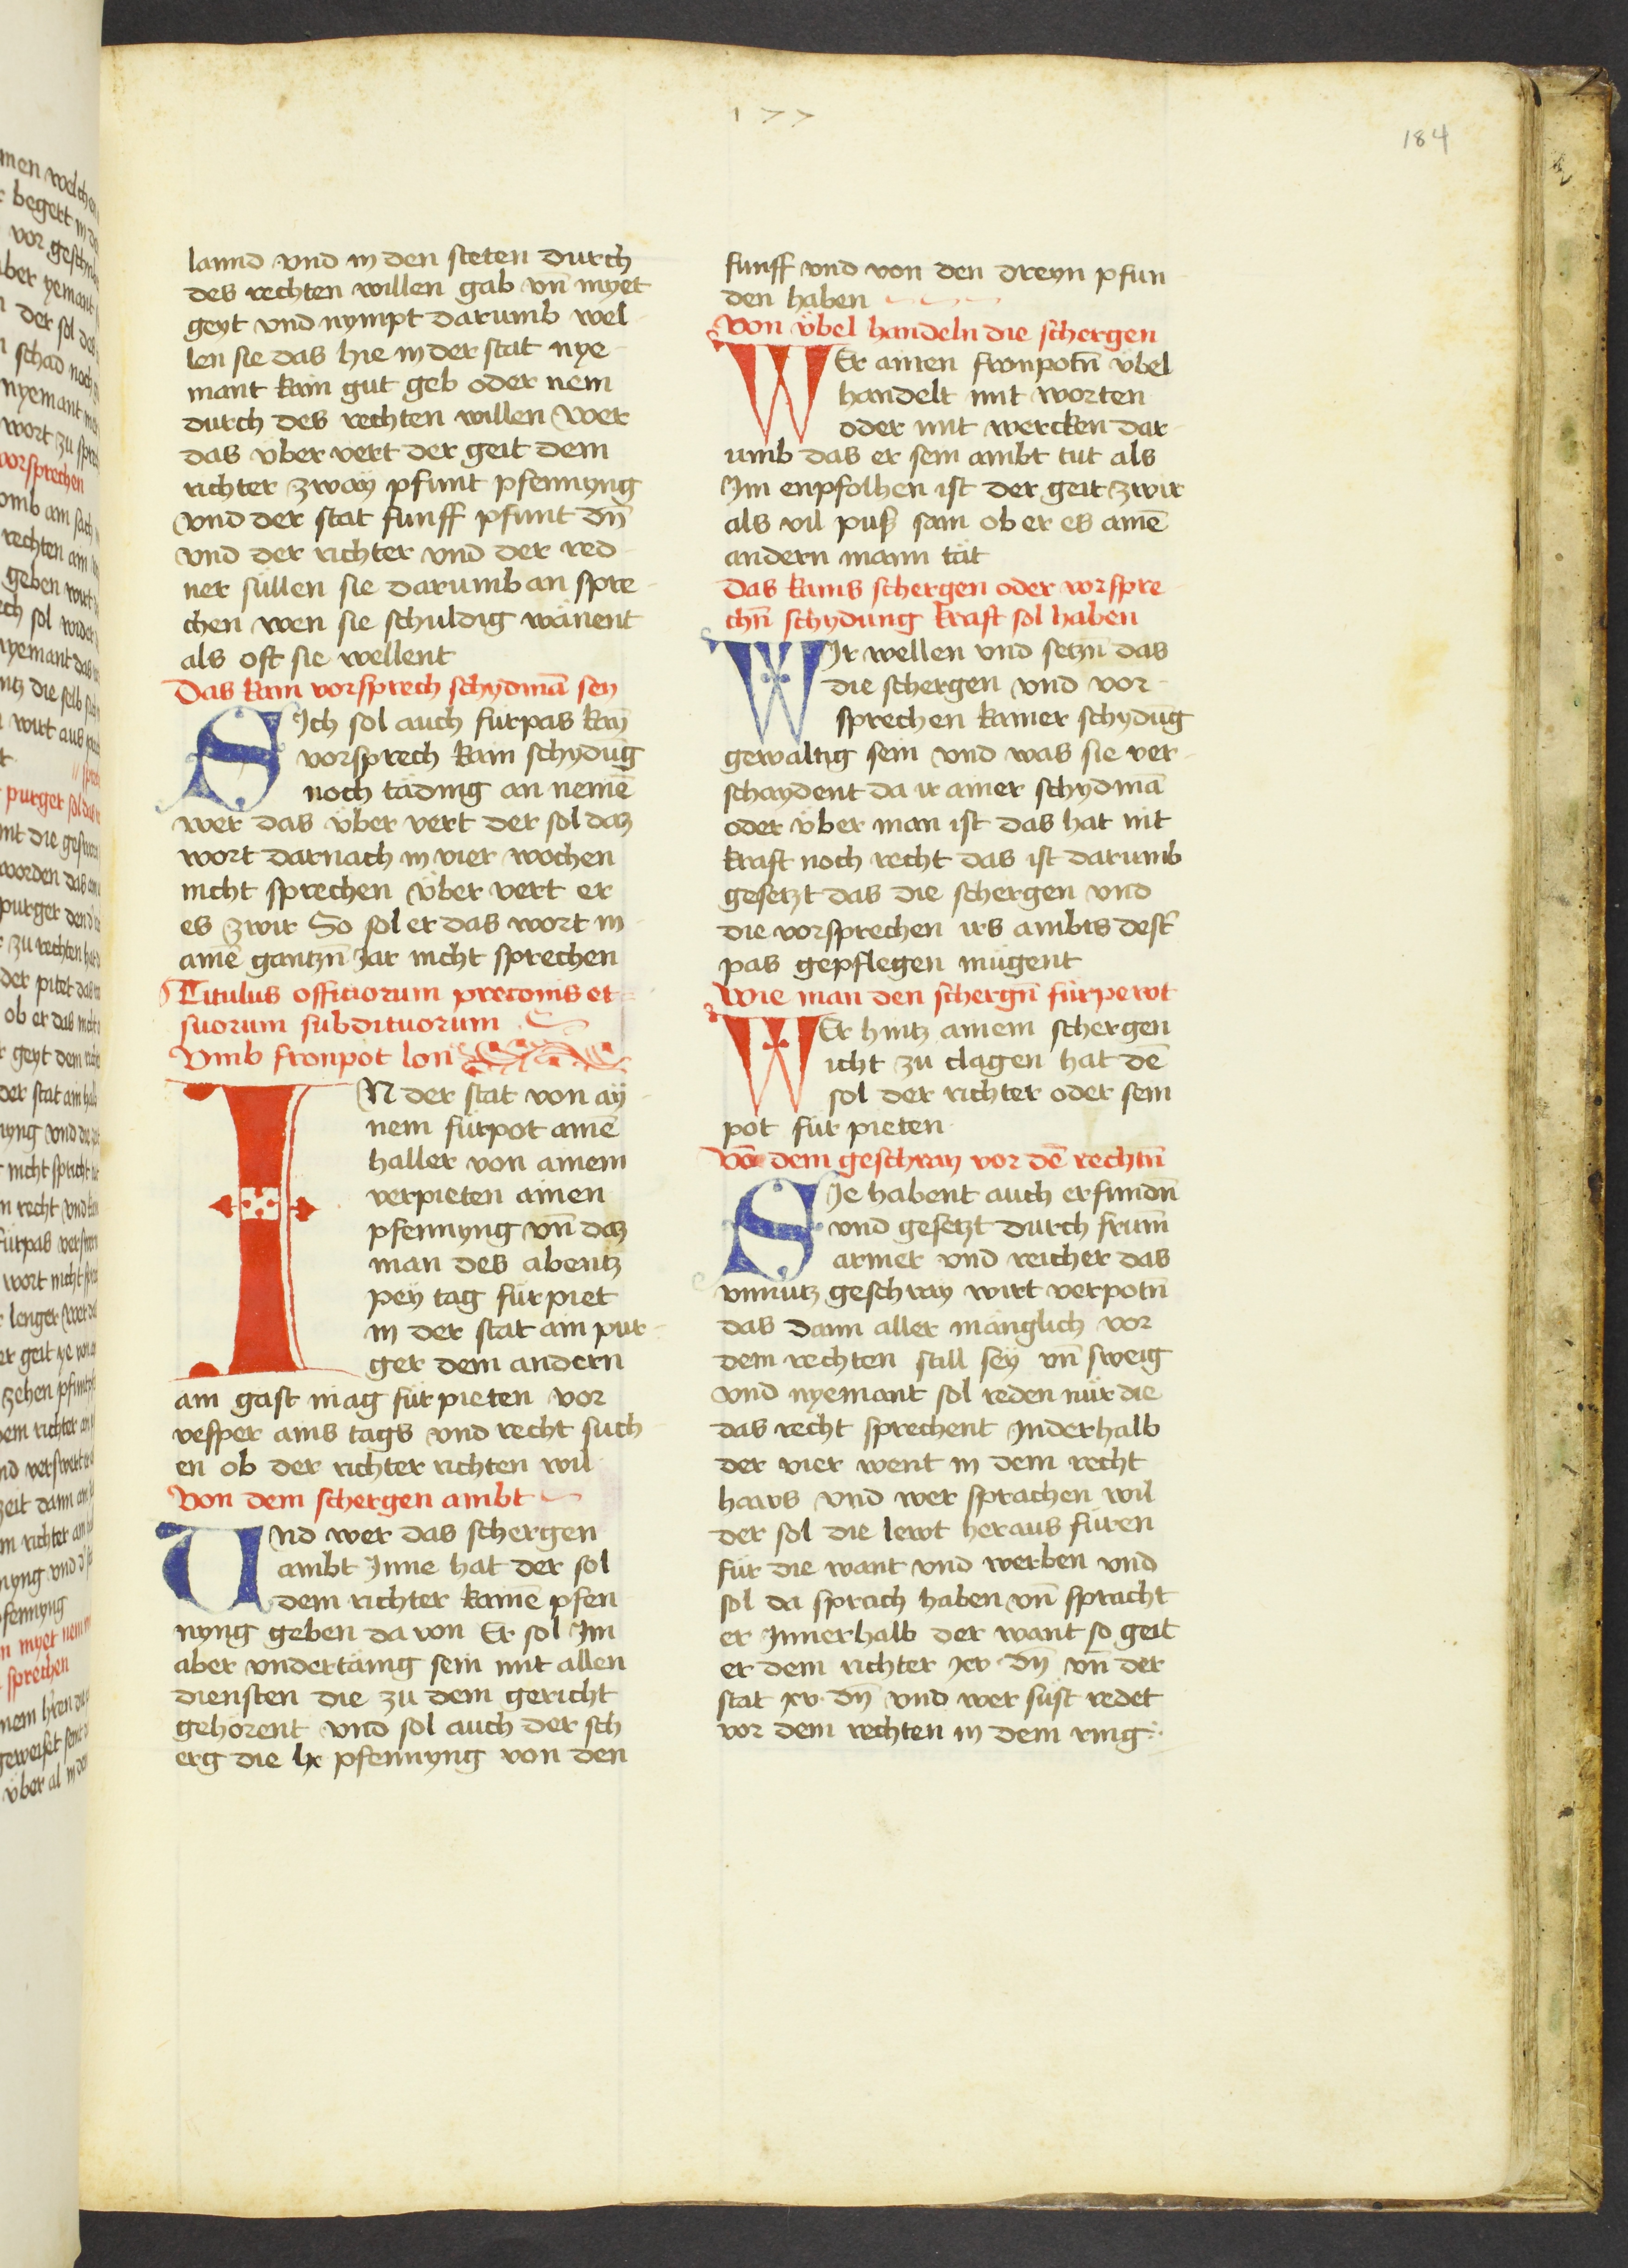 177
184
lannd vnd in den steten durch
des rechten willen gab vn̄ myet
geyt vnd nympt darumb wel-
len sie das hie in der stat nye-
mant kain gut geb oder nem
durch des rechten willen Wer
das v̈ber vert der geit dem
richter zwaÿ pfunt pfennyng
vnd der stat funff pfunt dn̄
vnd der richter vnd der red-
ner süllen sie darumb an spre-
chen wen sie schuldig wänent
als oft sie wellent
Das kain vorsprech schydmā sey
SIch sol auch fürpas kaȳ
vorsprech kain schydūg
noch täding an nemē
wer das v̈ber vert der sol daz
wort darnach in vier wochen
nicht sprechen v̈ber vert er
es zwir So sol er das wort in
aīē gantzn̄ Jar nicht sprechen
Titulus officiorum preconis et
suorum subdituorum
Vmb fronpot lon
IN der stat von aÿ-
nem fürpot aīē
haller von ainem
verpieten ainen
pfennyng vn̄ daz
man des abentz
peÿ tag für piet
in der stat ain pur-
ger dem andern
ain gast mag für pieten vor
vesper ains tags vnd recht such
en ob der richter richten wil
Von dem schergen ambt
Vnd wer das schergen
ambt Inne hat der sol
dem richter kainē pfen
nyng geben da von Er sol Im
aber vndertänig sein mit allen
diensten die zu dem gericht
gehörent vnd sol auch der sch
erg die lx pfennyng von den
funff vnd von den dreyn pfun
den haben
Von v̈bel handeln die schergen
WEr ainen fronpotn̄ v̈bel
handelt mit worten
oder mit wercken dar-
umb das er sein ambt tut als
Im enpfolhen ist der geit zwir
als vil puß sam ob er es ainē
andern mann tät
Das kains schergen oder vorspre-
chn̄ schydung kraft sol haben
WIr wellen vnd setzn̄ das
die schergen vnd vor-
sprechen kainer schydūg
gewaltig sein vnd was sie ver-
schaydent da ir ainer schydmā
oder v̈ber man ist das hat nit
kraft noch recht das ist darumb
gesetzt das die schergen vnd
die vorsprechen irs ambts dest̄
pas gepflegen mügent
Wie man den schergn̄ fürpewt
WEr hintz ainem schergen
icht zu clagen hat dē
sol der richter oder sein
pot für pieten
Vō dem geschray vor dē rechtn̄
SIe habent auch erfundn̄
vnd gesetzt durch frum̄
armer vnd reicher das
vnnutz geschray wirt verpotn̄
das dann aller mänglich vor
dem rechten still seÿ vn̄ sweig
vnd nyemant sol reden nür die
das recht sprechent Inderhalb
der vier went in dem recht
haws vnd wer sprachen wil
der sol die lewt heraus füren
für die want vnd werben vnd
sol da sprach haben vn̄ spracht
er Innerhalb der want so geit
er dem richter xv dn̄ vn̄ der
stat xv dn̄ vnd wer süst redet
vor dem rechten in dem ring